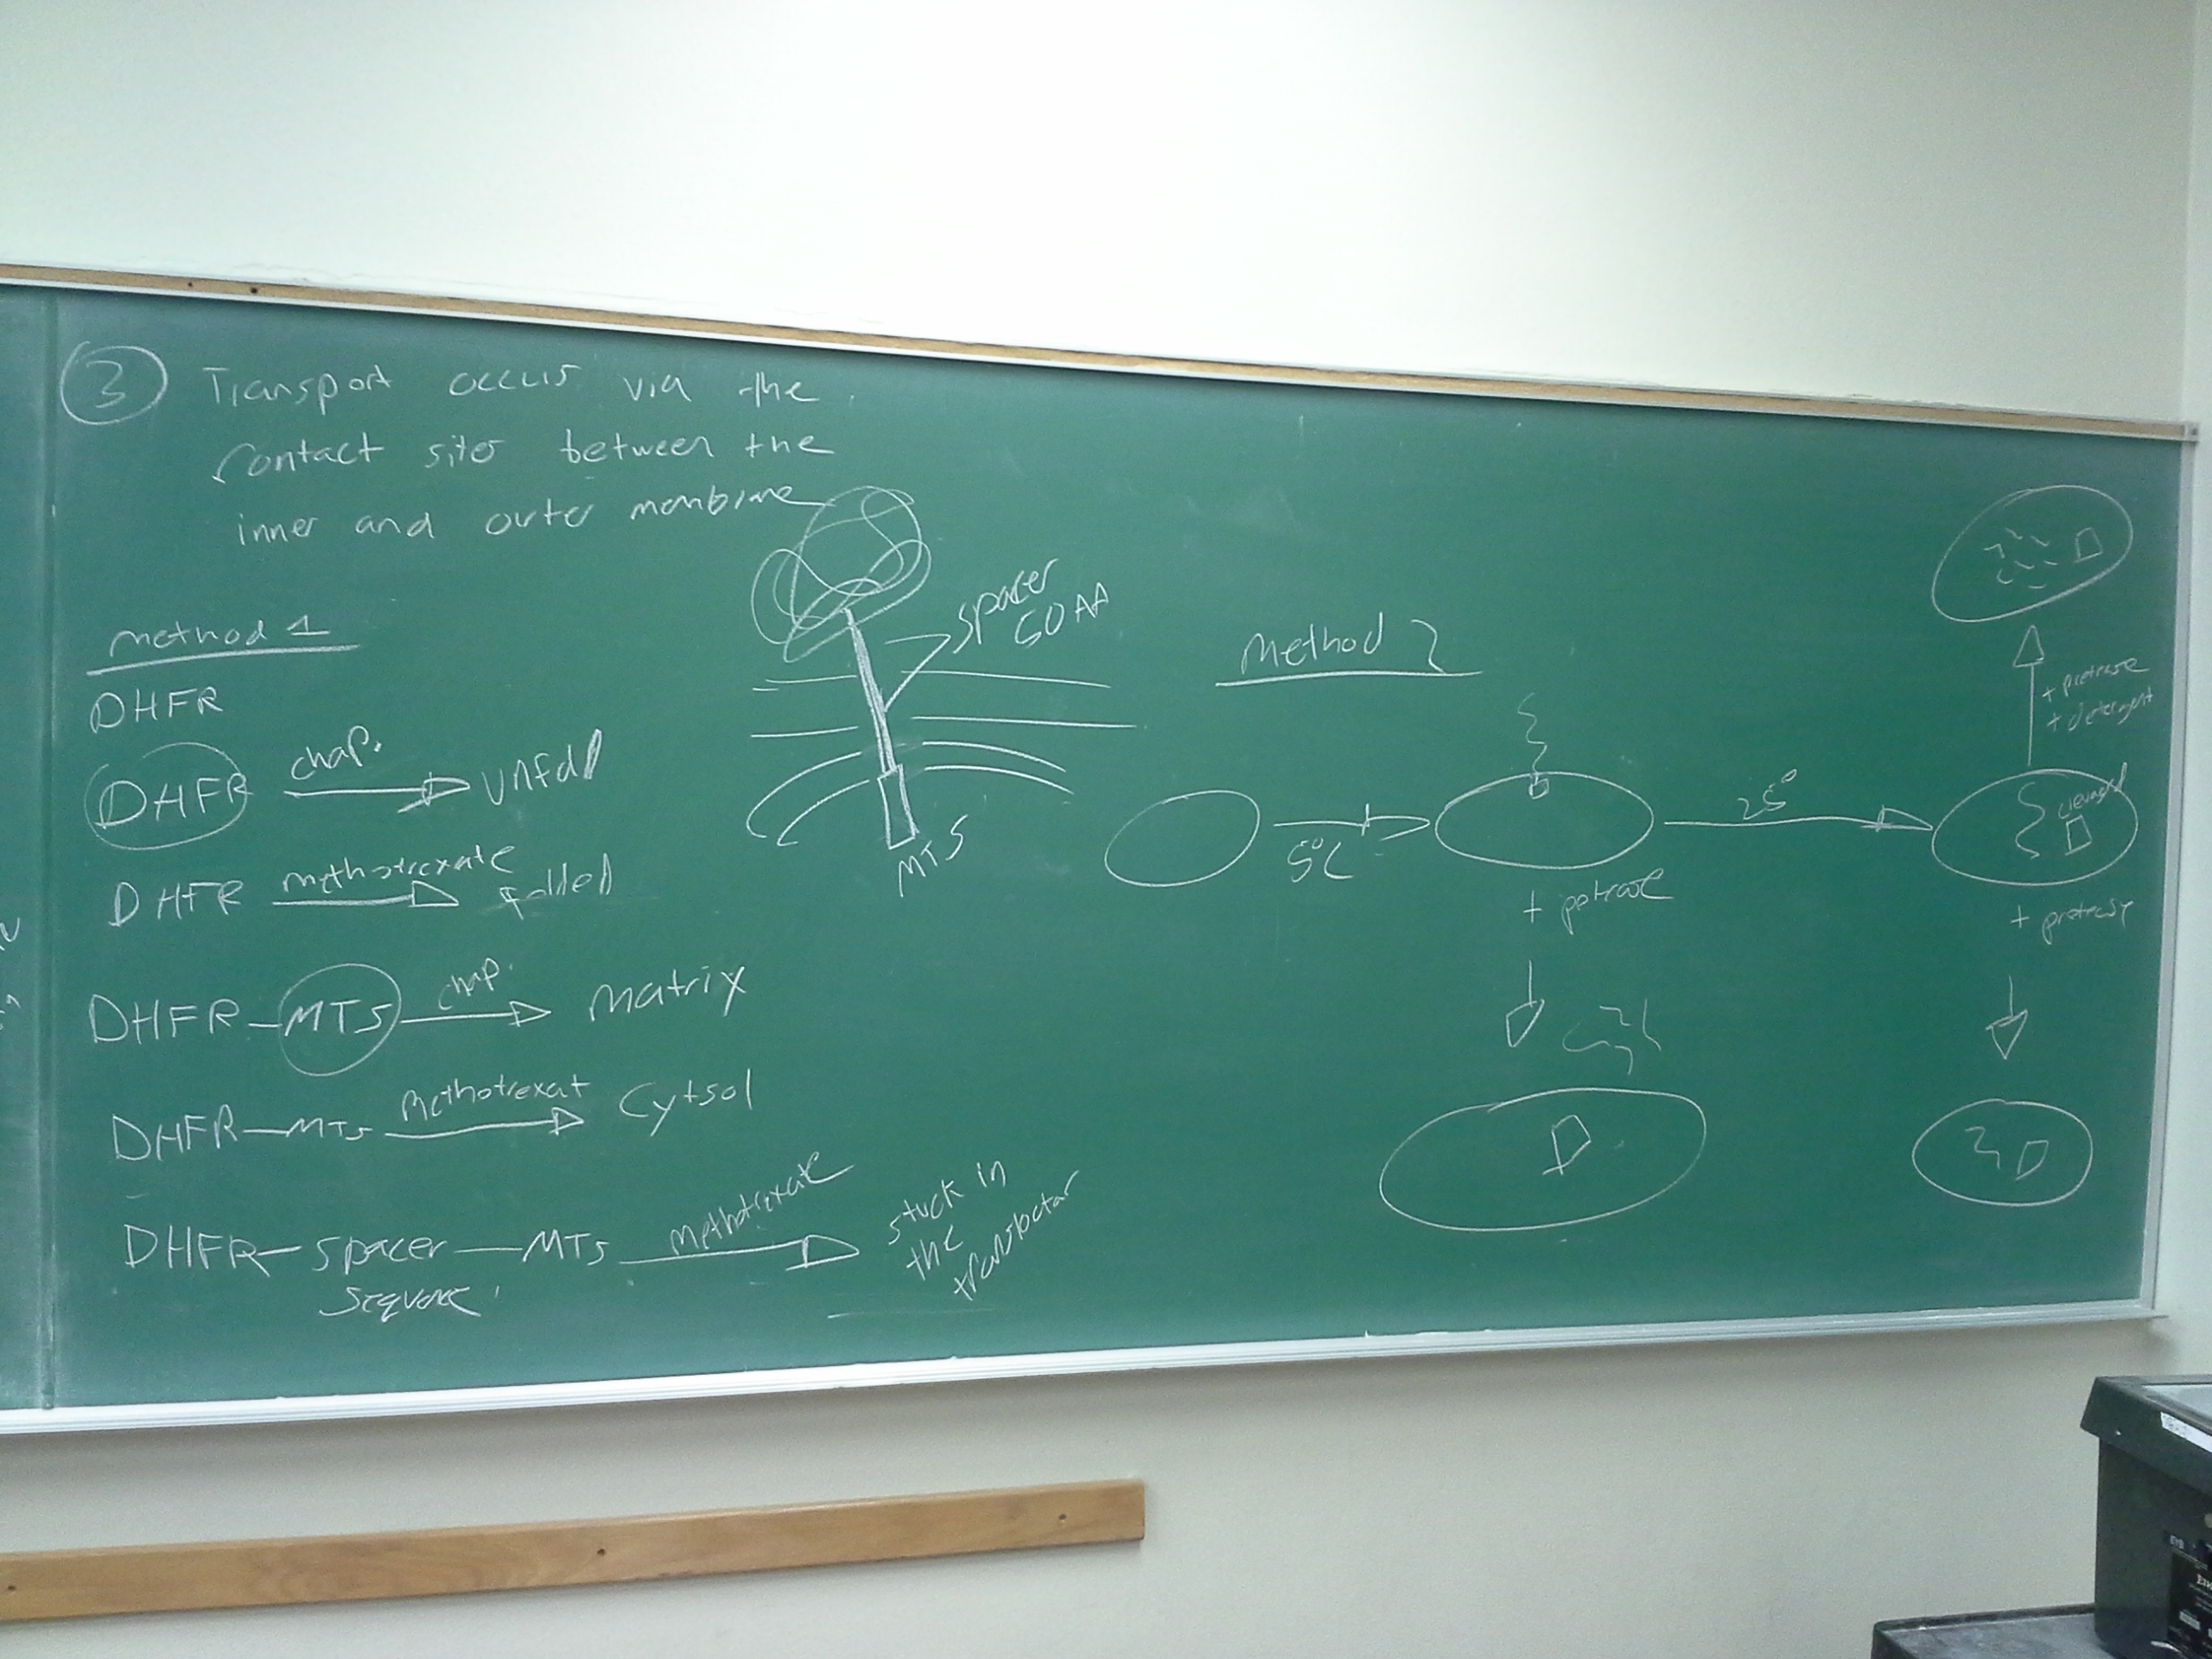 3 Transport occurs via the
contact sites between the
inner and outer membrane
Method 1
DHFR
DHFR chap. unfold
DHFR methotrexate folded
DHFR-MTS chap. Matrix
DHFR-MTS Methotrexat Cytsol
DHFR-Spacer-MTS methotrexate stuck in
the
translocator
Sequence
spacer
50 AA
MTS
Method 2
5°C
25°
+ potrease
cleaved
+ protease
+ protease
+ detergent